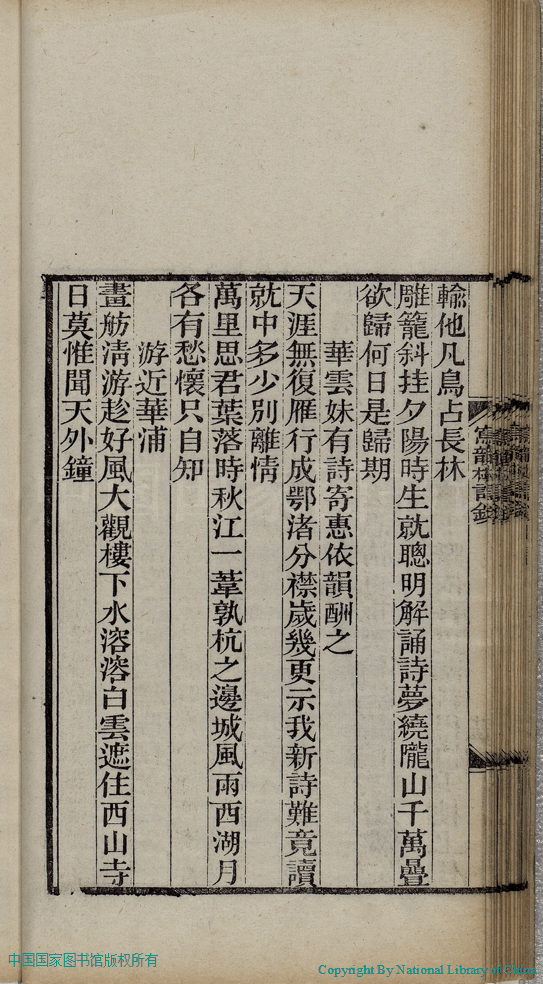 輸他凡鳥占長林
雕籠斜挂夕陽時生就聰明解誦詩夢繞隴山千萬疊
欲歸何日是歸期
華雲妹有詩寄惠依韻酬之
天涯無復雁行成鄂渚分襟歲幾更示我新詩難竟讀
就中多少別離情
萬里思君葉落時秋江一葦孰杭之邊城風雨西湖月
各有愁懷只自知
游近華浦
畫舫清游趁好風大觀樓下水溶溶白雲遮住西山寺
日莫惟聞天外鐘
中国国家图书馆版权所有
Copyright By National Library of China